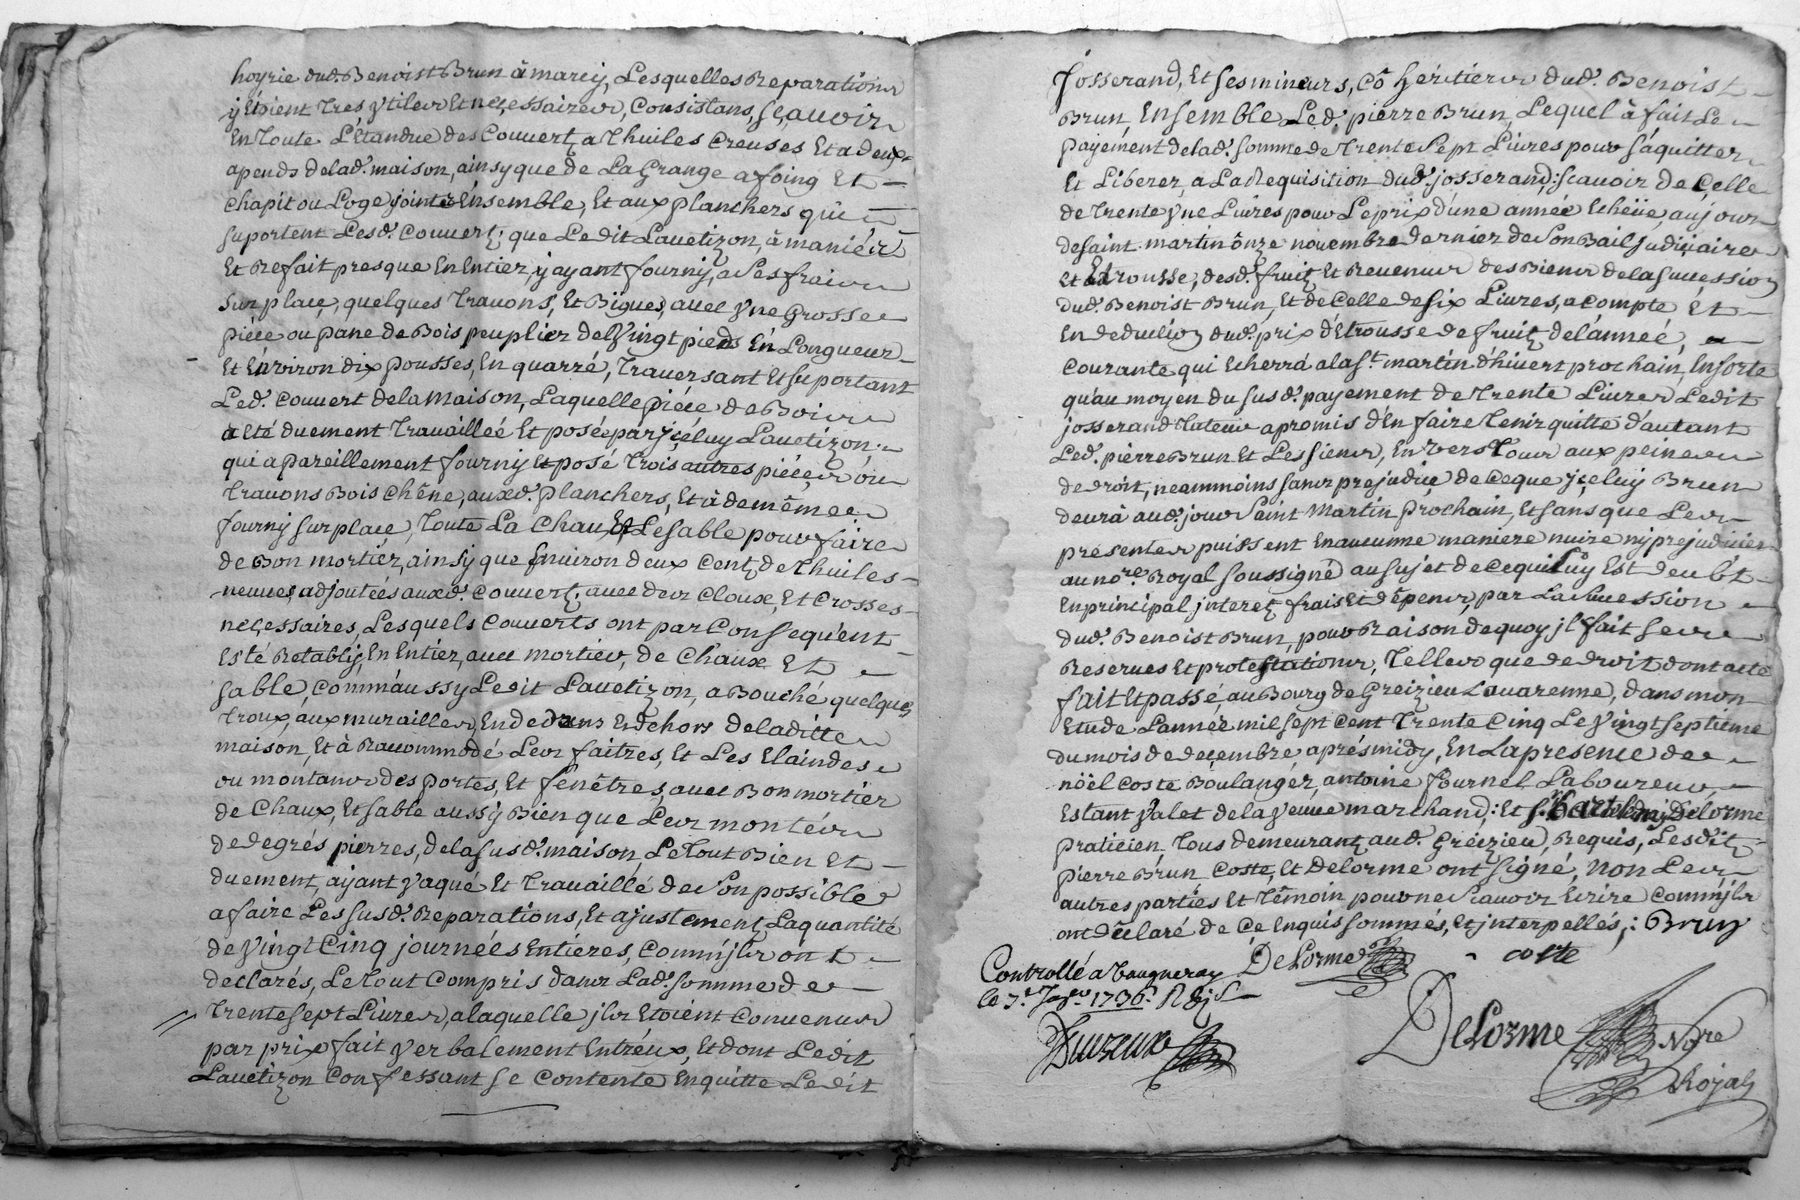 hoyrie dud. Benoist Brun à marcÿ, Lesquelles Reparations
ÿ Etoient tres ytiles Et necessaires, Consistans, sçavoir
En toute L'Etandue des Couvertz a Thuiles Creuses Et a deux
apends de lad. maison, ainsy que de La Grange a foing Et
Chapit ou Loge jointes Ensemble, Et aux planchers qui
suportent Lesd. Couvertz; que Ledit Lauetizon, à maniéé
Et Refait presque En Entier, y ayant fourny, a Ses frais
Sur place, quelques travons, Et Bigues, avec yne Grosse
piéce ou pane de Bois peuplier de Vingt pieds En Longueur
Et Environ dix pousses, En quarré, traversant Et suportant
Led. Couvert de la Maison, Laquelle piéce de Bois
à Eté duement travailleé Et poseé par jçéluy Lauetizon;
qui a pareillement fourny Et posé trois autres piéces ou
travons Bois Chêne, auxd. planchers, Et à de même
fourny sur place, toute La Chau, Et Le sable pour faire
de Bon mortiér, ainsy que Environ deux Centz de Thuiles
neuves, adjoutéés auxd. Couvertz; avec des Cloux, Et Crosses
necessaires, Lesquels Couverts ont par Conséquént
Esté Retablis, En Entiér, avec mortiér, de Chaux Et
sable, comm'aussy Ledit Lauetizon, a Bouché quelques
troux, aux murailles, En dedans En dehors de laditte
maison, Et à Raccommodé Les faitres, Et Les Elaindes
ou montans des portes, Et fenêtres, avec Bon mortiér
de Chaux, Et sable aussy Bien que Les montéés
de degrés pierres, de la susd. maison, Le tout Bien Et
duement, aÿant yaqué Et travaillé de Son possible
a faire Les susd. Reparations, Et ajustementz, La quantité
de Vingt Cinq journéés Entiéres, Comm'jls ont
declarés, Le tout Compris dans Lad. somme de
trente sept Livres, a laquelle jls Etoient Convenus
par prix fait yerbalement Entréux, Et dont Ledit
Lauetizon Confessant se contente En quitte Ledit
Josserand, Et ses mineurs, Cô héritiérs dud. Benoist
Brun, Ensemble Led. pierre Brun, Lequel à fait Le
payement de lad. somme de trente Sept Livres pour s'aquitter
Et Liberer, a La Requisition dud. josserand; scavoir de Celle
de trente yne Livres pour Le prix d'une anneé Echeüe, au jour
de saint martin ônze novembre dernier de Son Bail judiciaire
Et Etrousse, desd. fruitz Et Revenus des Biens de la succession
dud. Benoist Brun, Et de Celle de six Livres, a compte Et
En deduction dud. prix d'Etrousse de fruitz de l'anneé,
courante qui Echerrá a la St. martin d'hivert prochain, Ensorte
qu'au moyen du susd. payement de trente Livres Ledit
josserand tuteur a promis d'En faire tenir quitte d'autant
Led. piérre Brun Et Les siens, En Vers tous aux peines
de droit, neammoins sans prejudice de Ce que jçeluy Brun
devrà aud. jour Saint Martin prochain, Et sans que Les
présentes puissent En aucunne maniere nuire ny prejudicier
au nore. Royal soussigné au sujet de Ce qui Luy Est deubt
En principal, jnteretz frais Et dépens, par La succession
dud. Benoist Brun, pour Raison de quoy jl fait ses
Reserves Et protestations, telles que de droit dont acte
fait Et passé, au Bourg de Greizieu Lavarenne, dans mon
Etude L'anneé mil sept Cent trente Cinq Le Vingt septieme
du mois de decembre aprés midy, En La presence de
nöel Coste Boulangér, antoine fournel Laboureur,
Estant yalet de la yeuve marchand: Et sr. Bartelemy Delorme
praticien tous demeurantz aud. Greizieu, Requis, Lesditz
pierre Brun Coste, Et Delorme ont signé, Non Les
autres parties Et témoin pour ne Scavoir Ecrire Comm'jls
ont déclaré de Ce Enquis sommés, Et jnterpellés;: Brun
DeLorme coste
Controllé a Vaugneray
le 7.e Janer. 1736.
DeLorme Nore
Roÿal